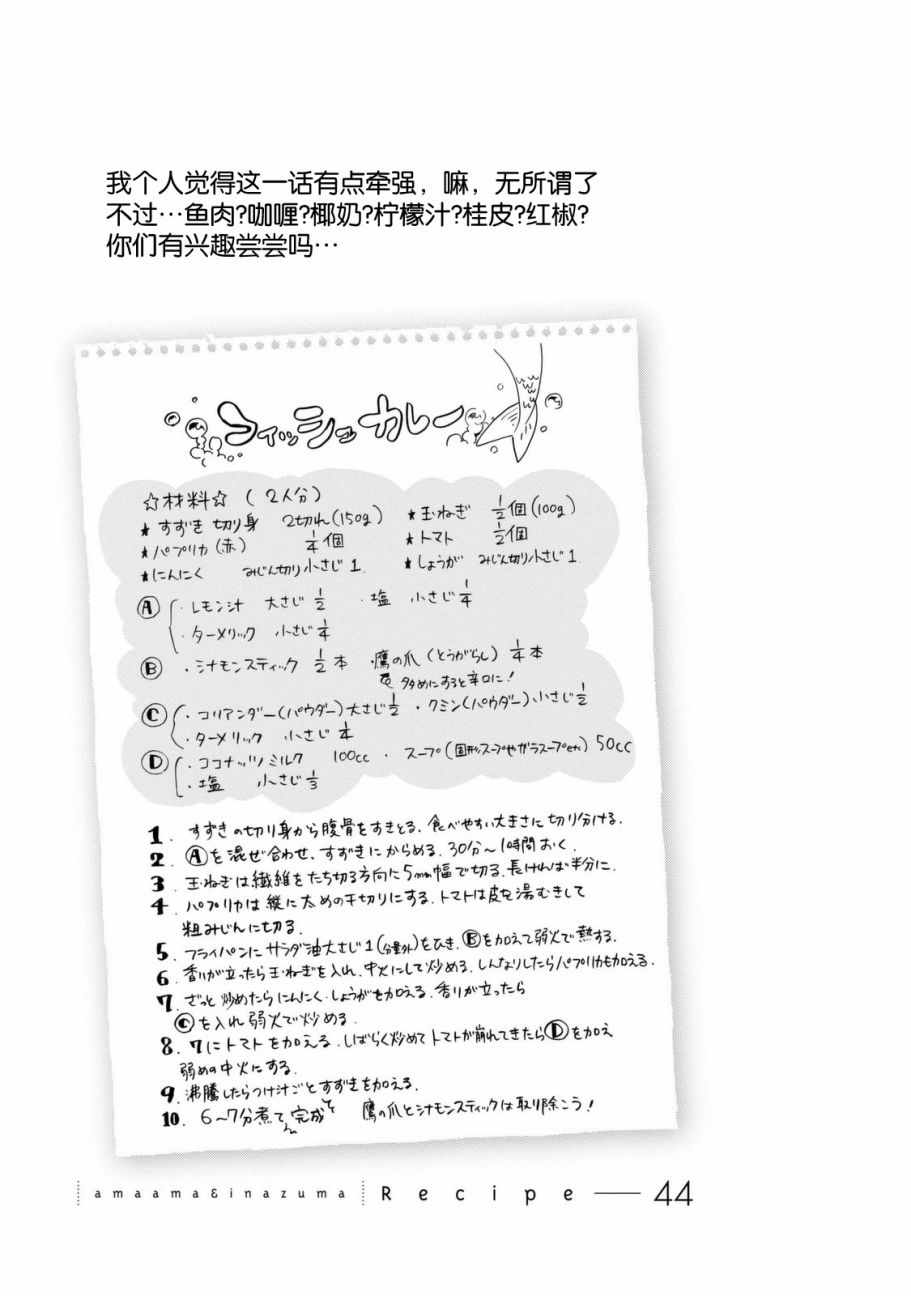 我个人觉得这一话有点牵强，嘛，无所谓了
不过…鱼肉?咖喱?椰奶?柠檬汁?桂皮?红椒?
你们有兴趣尝尝吗…
フィッシュカレー
☆材料☆ (2人分)
★すずき 切り身 2切れ(150g) ★玉ねぎ 1/2個(100g)
★パプリカ(赤) 1/4個 ★トマト 1/2個
★にんにく みじん切り小さじ1. ★しょうが みじん切り小さじ1.
Ⓐ ・レモン汁 大さじ1/2 ・塩 小さじ1/4
・ターメリック 小さじ1/4
Ⓑ ・シナモンスティック 1/2本 ・鷹の爪(とうがらし) 1/4本
多めにすると辛口に!
Ⓒ ・コリアンダー(パウダー)大さじ1/2 ・クミン(パウダー)小さじ1/2
・ターメリック 小さじ1/4
Ⓓ ・ココナッツミルク 100cc ・スープ(固形スープやガラスープetc) 50cc
・塩 小さじ1/3
1. すずきの切り身から腹骨をすきとる.食べやすい大きさに切り分ける.
2. Ⓐを混ぜ合わせ、すずきにからめる.30分〜1時間おく.
3. 玉ねぎは繊維をたち切る方向に5mm幅で切る.長ければ半分に.
4. パプリカは縦に太めの千切りにする.トマトは皮を湯むきして
粗みじんに切る.
5. フライパンにサラダ油大さじ1(分量外)をひき、Ⓑを加えて弱火で熱する.
6. 香りが立ったら玉ねぎを入れ、中火にして炒める.しんなりしたらパプリカも加える.
7. ざっと炒めたらにんにく・しょうがを加える.香りが立ったら
Ⓒを入れ弱火で炒める.
8. 7にトマトを加える.しばらく炒めてトマトが崩れてきたらⒹを加え
弱めの中火にする.
9. 沸騰したらつけ汁ごとすずきを加える.
10. 6〜7分煮て完成 鷹の爪とシナモンスティックは取り除こう!
amaama&inazuma Recipe 44